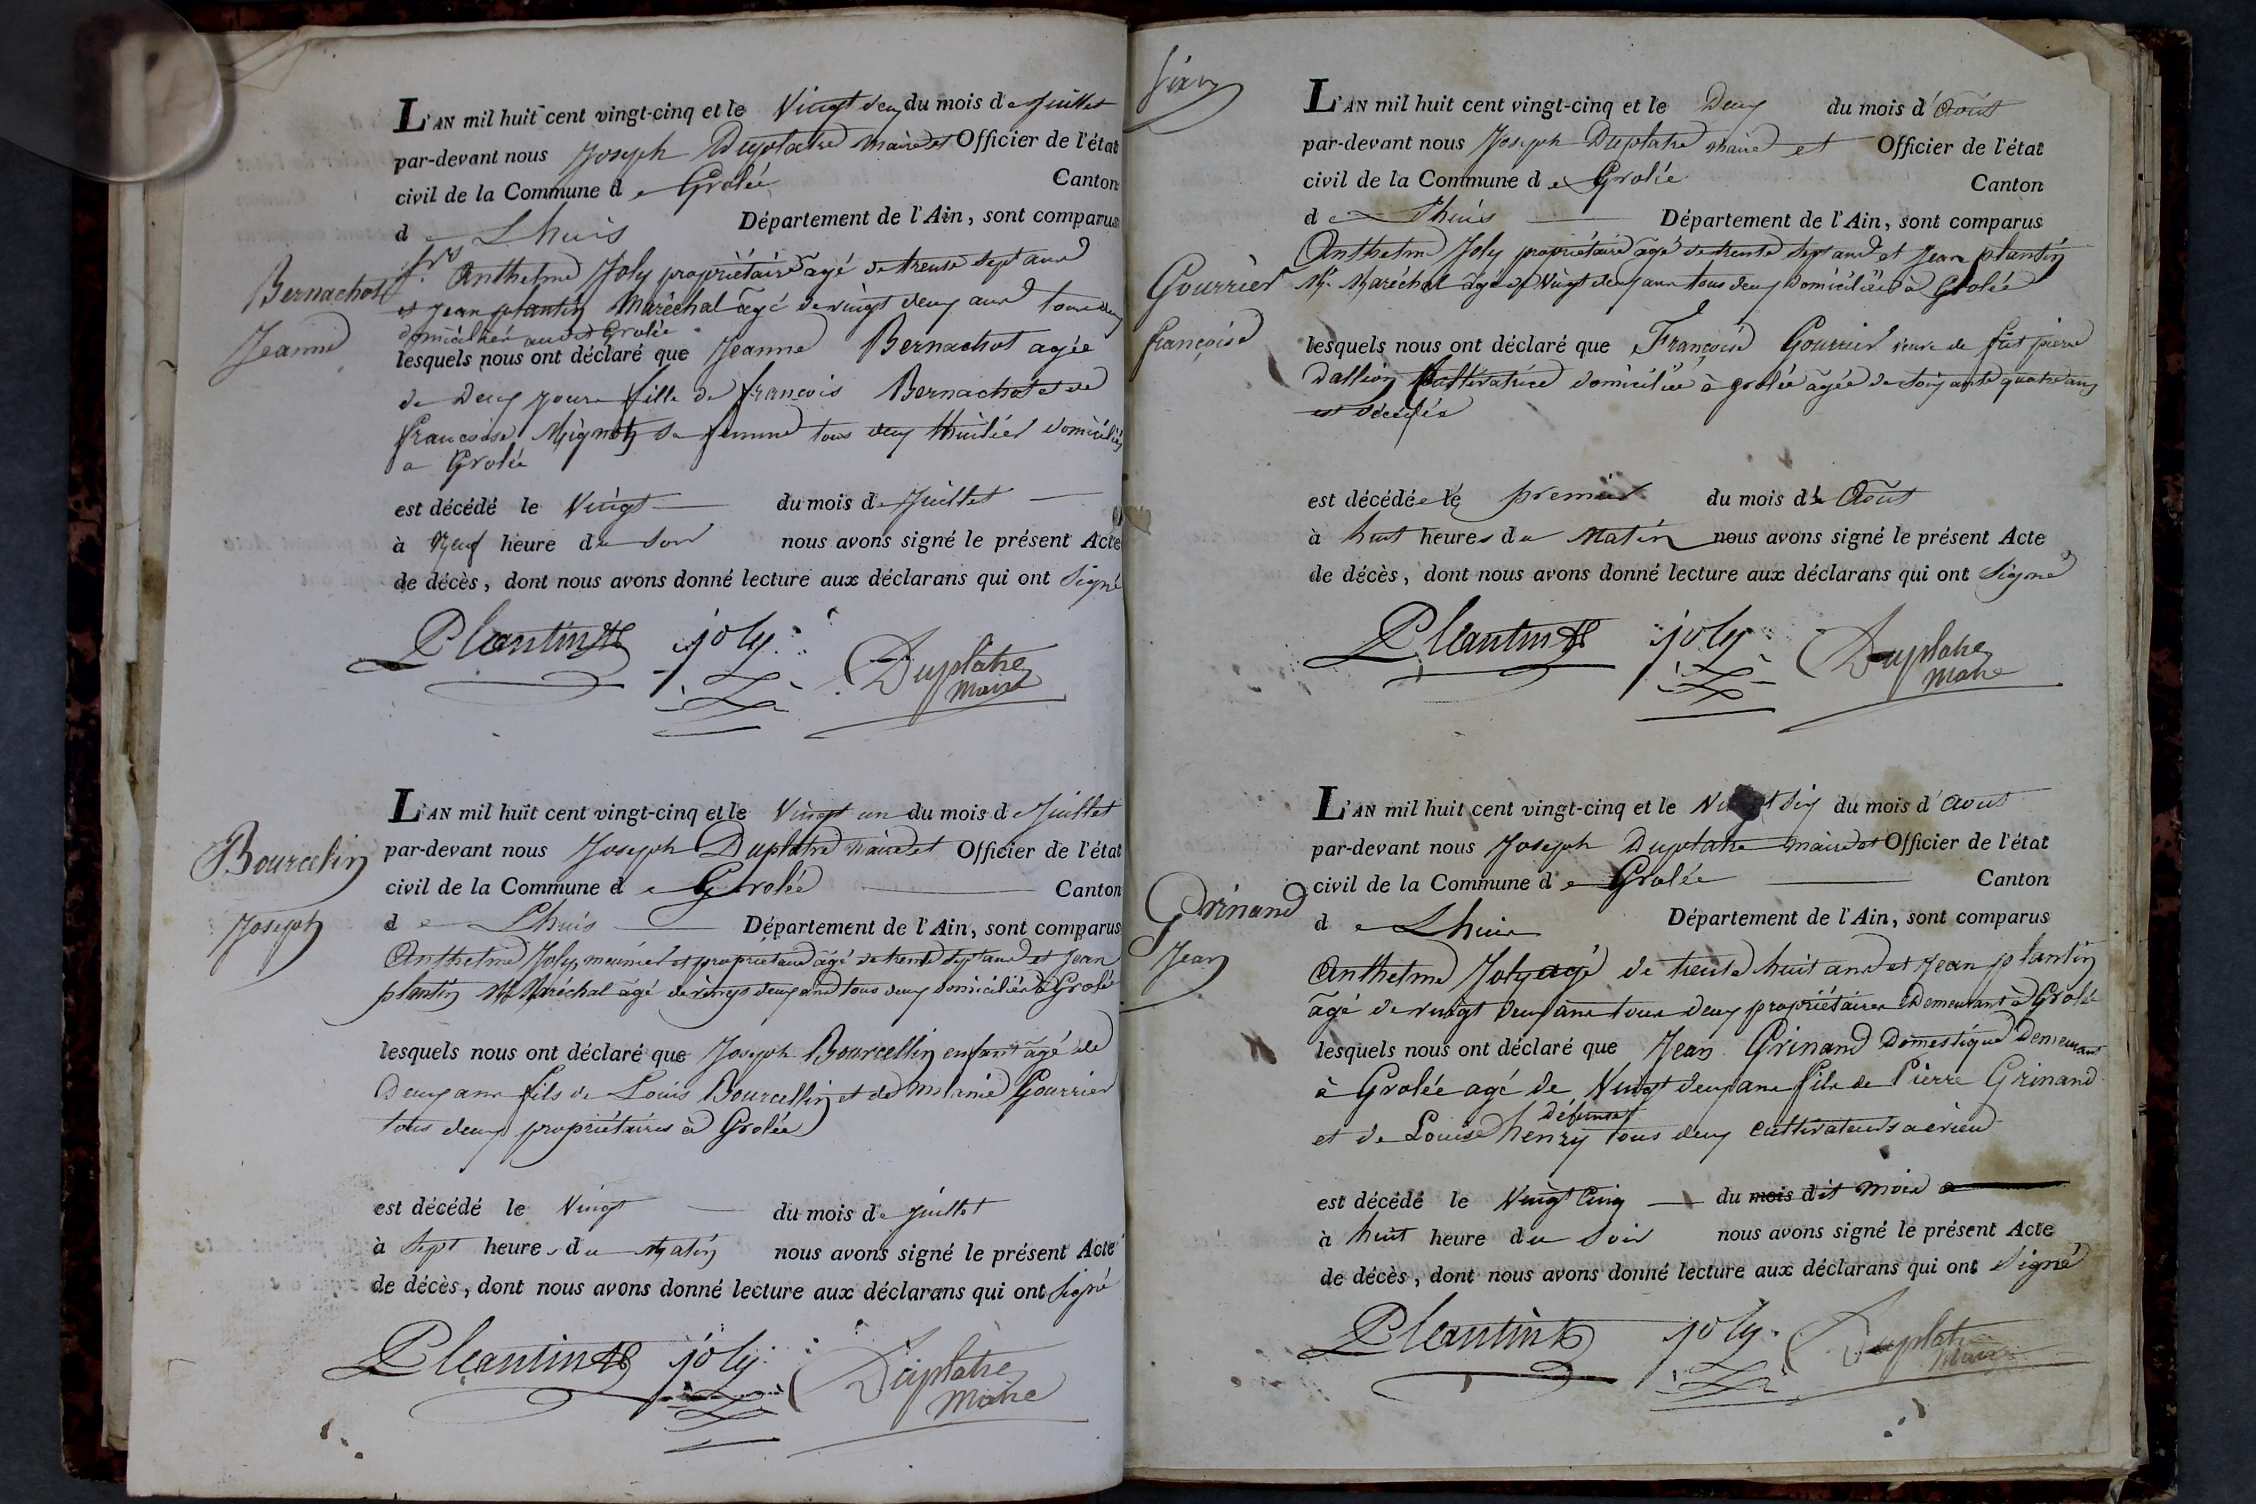 L'AN mil huit cent vingt-cinq et le Vingt deux du mois de Juillet
par-devant nous Joseph Duplatre maire et Officier de l'état
civil de la Commune de Grolée Canton
de Lhuis Département de l'Ain, sont comparus
Srs Anthelme Joly propriétaire agé de trente sept ans
et Jean plantin Maréchal agé de vingt deux ans tous deux
domiciliés audit Grolée
Bernachot
Jeanne
lesquels nous ont déclaré que Jeanne Bernachot agée
de Deux jours fille de françois Bernachot et de
francoise Mignot sa femme tous deux domiciliés
a Grolée
est décédé le Vingt du mois de Juillet
à Neuf heure du Soir nous avons signé le présent Acte
de décès, dont nous avons donné lecture aux déclarans qui ont Signé
Plantin joly Duplatre
Maire
L'AN mil huit cent vingt-cinq et le Vingt un du mois de Juillet
par-devant nous Joseph Duplatre maire et Officier de l'état
civil de la Commune de Grolée Canton
de Lhuis Département de l'Ain, sont comparus
Bourcelin
Joseph
Anthelme Joly meunier et propriétaire agé de trente sept ans et Jean
plantin Maréchal agé de vingt deux ans tous deux domiciliés à Grolée
lesquels nous ont déclaré que Joseph Bourcellin enfant agé de
Deux ans fils de Louis Bourcellin et de Melanie Gourrier
tous deux propriétaires à Grolée
est décédé le Vingt du mois de juillet
à Sept heures du Matin nous avons signé le présent Acte
de décès, dont nous avons donné lecture aux déclarans qui ont Signé
Plantin joly Duplatre
Maire
Six
L'AN mil huit cent vingt-cinq et le Deux du mois d'Août
par-devant nous Joseph Duplatre maire et Officier de l'état
civil de la Commune de Grolée Canton
de Lhuis Département de l'Ain, sont comparus
Anthelme Joly propriétaire agé de trente sept ans et Jean plantin
Maréchal agé de Vingt deux ans tous deux domiciliés à Grolée
Gourrier
françoise
lesquels nous ont déclaré que Françoise Gourrier veuve de fut pierre
Dallion Cultivatrice domiciliée à grolée agée de soixante quatre ans
est décédée
est décédée le premier du mois de Août
à huit heures du Matin nous avons signé le présent Acte
de décès, dont nous avons donné lecture aux déclarans qui ont Signé
Plantin joly Duplatre
Maire
L'AN mil huit cent vingt-cinq et le Vingt Six du mois d'Aout
par-devant nous Joseph Duplatre maire et Officier de l'état
civil de la Commune de Grolée Canton
de Lhuis Département de l'Ain, sont comparus
Grinand
Jean
Anthelme Joly agé de trente huit ans et Jean plantin
agé de vingt deux ans tous deux propriétaires Demeurant à Grolée
lesquels nous ont déclaré que Jean Grinand Domestique Demeurant
à Grolée agé de Vingt deux ans fils de Pierre Grinand
défunts
et de Louise henry tous deux cultivateurs a
est décédé le Vingt Cinq du mois dit mois
à huit heure du Soir nous avons signé le présent Acte
de décès, dont nous avons donné lecture aux déclarans qui ont Signé
Plantin joly Duplatre
Maire